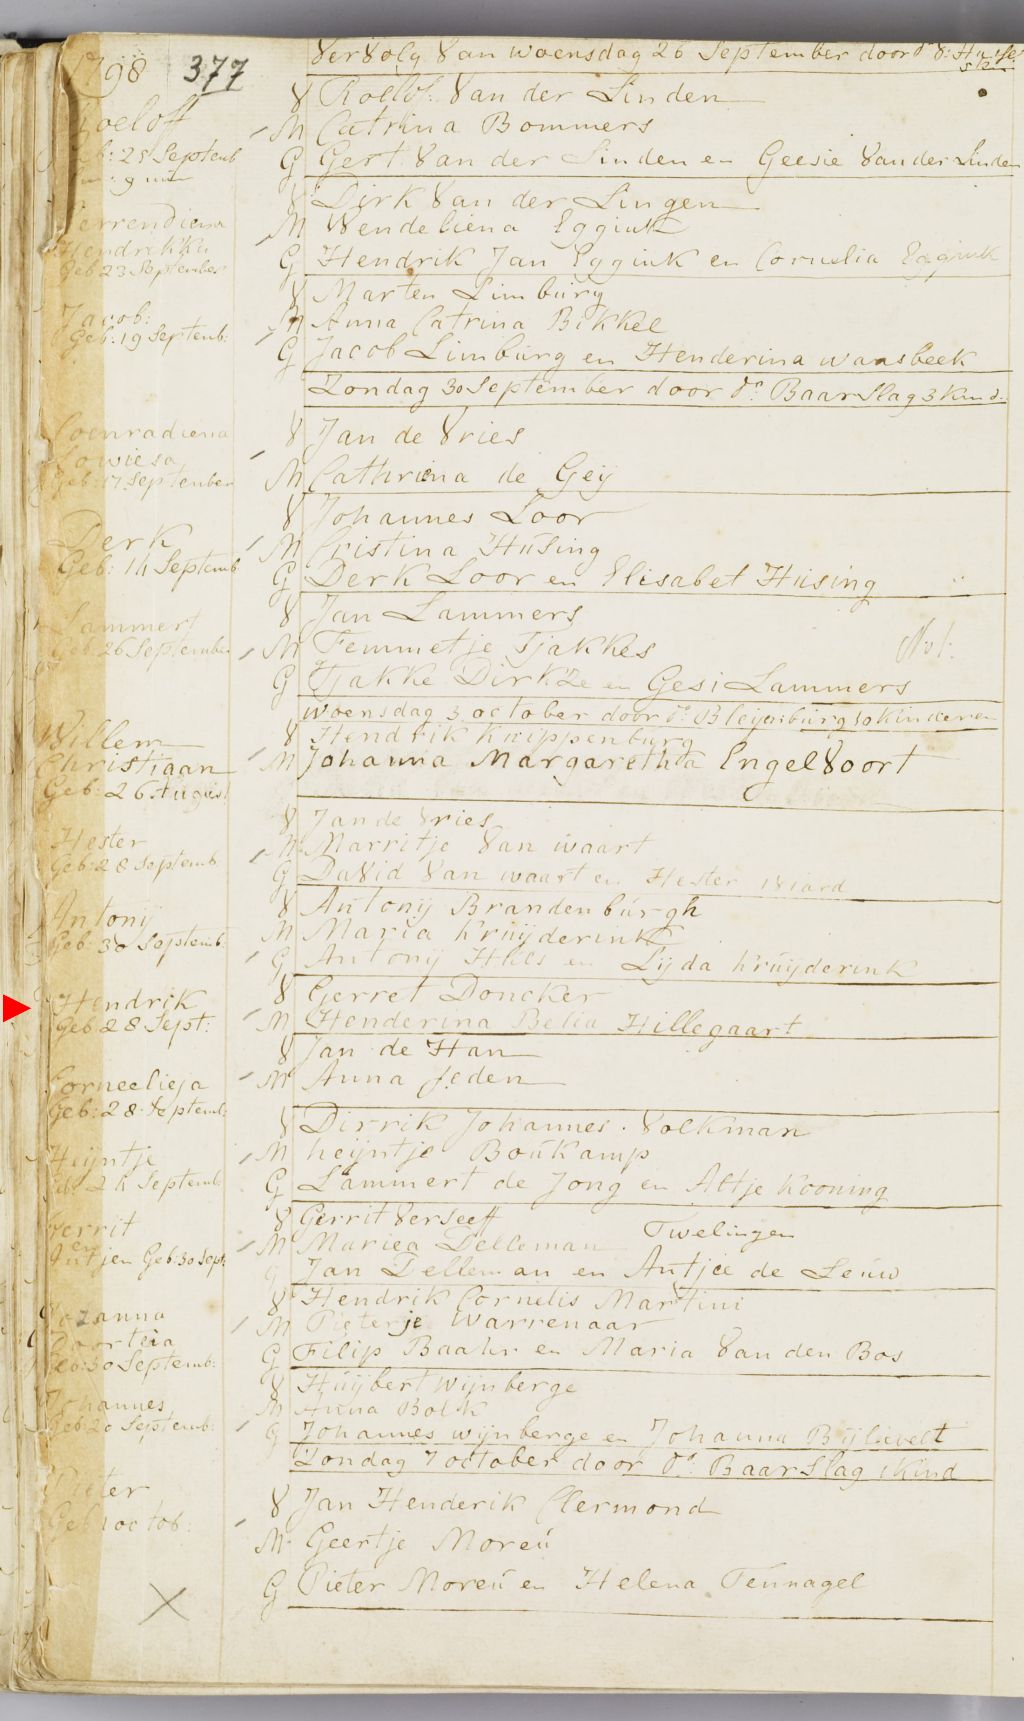 1798 377
Vervolg van woensdag 26 September door ds:
Roelof
Geb: 25 Septemb
V Roelof van der Linden
M Catrina Bommers
G Gert van der Linden en Geesie van der Linden
Hendrikka
Geb 23 September
V Dirk van der Lingen
M Wendeliena Eggink
G Hendrik Jan Eggink en Cornelia Eggink
Jacob:
Geb: 19 Septemb:
V Marten Limburg
M Anna Catrina Bikkel
G Jacob Limburg en Henderina waasbeek
Zondag 30 September door ds: Baarslag 3 Kind:
Coenradiena
Lowiesa
Geb: 17 September
V Jan de Vries
M Cathriena de Geij
Derk
Geb: 14 Septemb
V Johannes Loor
M Cristina Hüsing
G Derk Loor en Elisabet Hüsing
Lammert
Geb: 26 September
V Jan Lammers
M Femmetje Tjakkes
G Tjakke Dirkze en Gesi Lammers
woensdag 3 october door ds: Bleijenburg 10 Kinderen
Willem
Christiaan
Geb: 26 August
V Hendrik Knippenburg
M Johanna Margaretha Engelvoort
Hester
Geb: 28 Septemb
V Jan de Vries
M Marritje van waart
G David van waart en Hester
Antonij
Geb: 30 Septemb:
V Antonij Brandenburgh
M Maria Kruijderink
G Antonij en Lijda Kruijderink
Hendrik
Geb: 28 Sept:
V Gerret Doncker
M Henderina Belia Hillegaart
Corneelieja
Geb: 28 Septemb:
V Jan de Han
M Anna Jeden
Heijntje
Septemb:
V Dirrik Johannes Volkman
M heijntje Boukamp
G Lammert de Jong en Altje Kooning
Gerrit
Antjen Geb: 30 Sept:
V Gerrit Verseeff Twelingen
M Mariea Delleman
G Jan Delleman en Antjee de Leuw
Geb: 30 Septemb:
V Hendrik Cornelis Martini
M Pieterje Warrenaar
G Filip Baahr en Maria van den Bos
Johannes
Geb: 20 Septemb:
V Huijbert wijnberge
M Anna Bolk
G Johannes wijnberge en Johanna Bijlievelt
Zondag 7 october door ds: Baarslag 1 Kind
Pieter
Geb 1 octob:
V Jan Henderik Clermond
M Geertje Moreú
G Pieter Moreú en Helena Teunagel